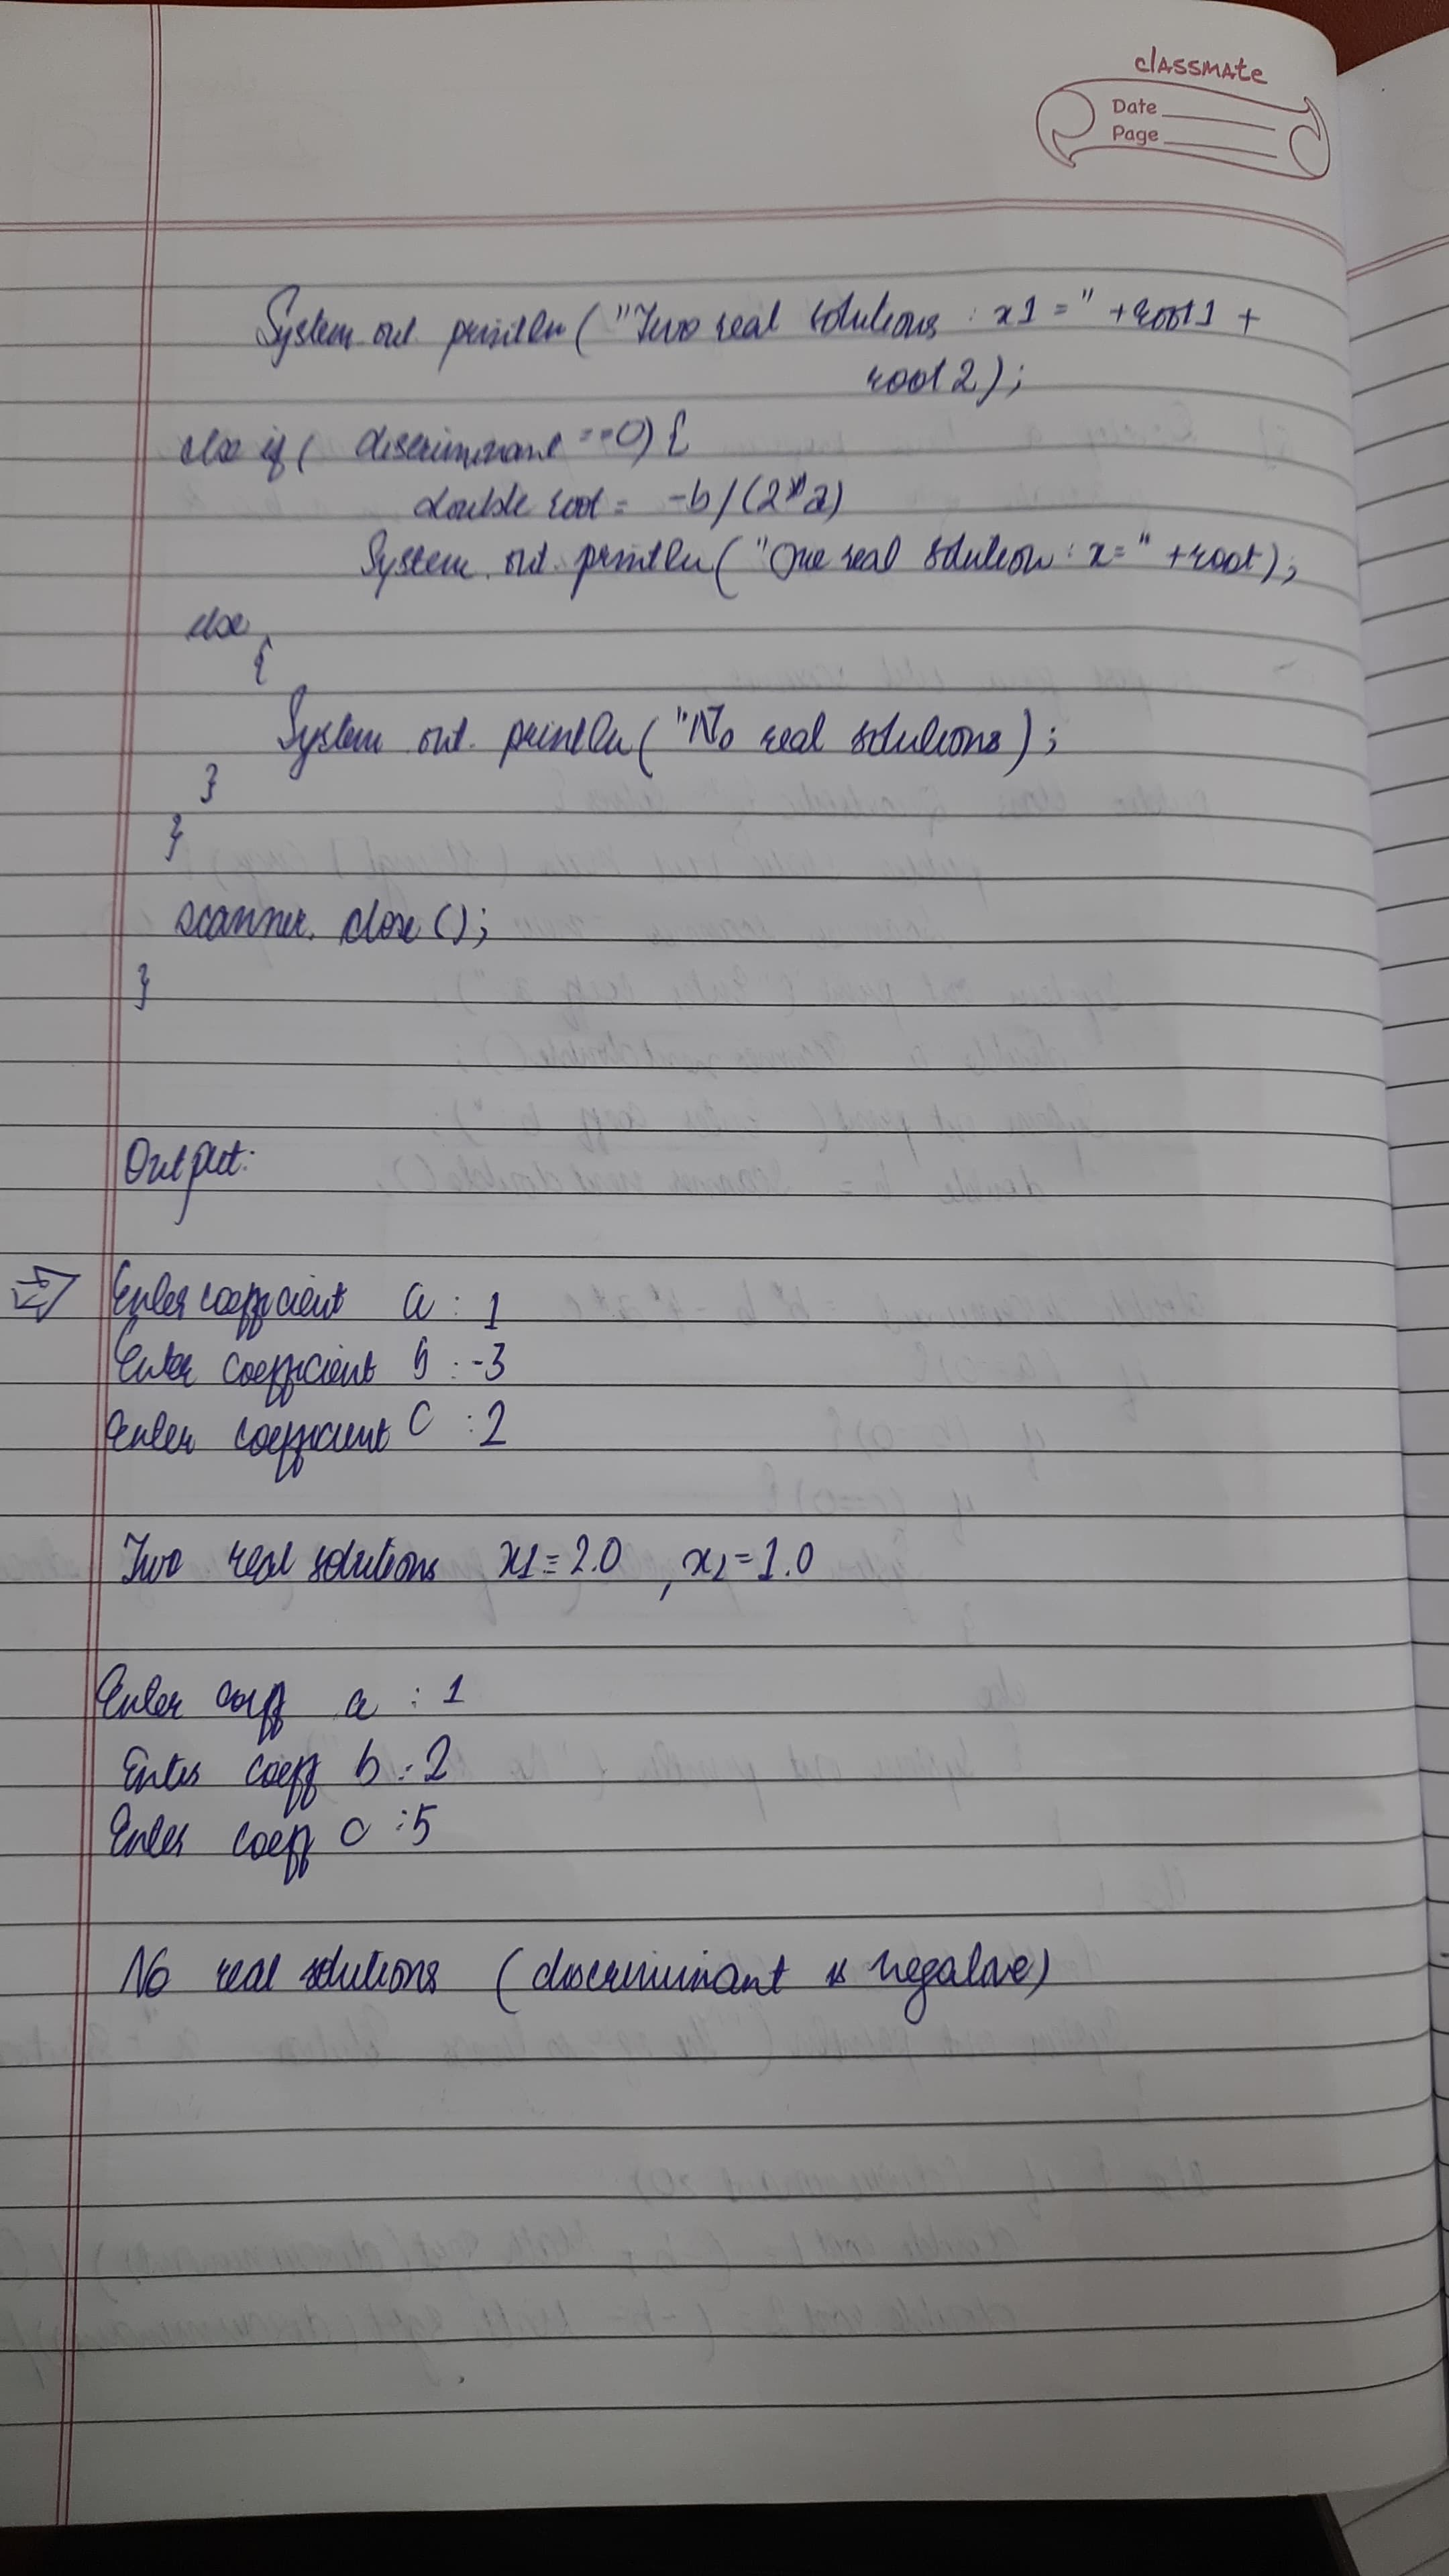 classmate
Date
Page
System.out.println("Two real solutions : x1 = " + root1 +
root2);
else if ( discriminant ==0) {
double root = -b/(2*a)
System.out.println("One real solution : x=" +root);
else
{
System out. println("No real solutions);
}
}
scanner. close();
}
Output:
Enter coefficient a : 1
Enter coefficient b : -3
Enter coefficient c : 2
Two real solutions x1=2.0 , x2=1.0
Enter coeff a : 1
Enter coeff b : 2
Enter coeff c : 5
No real solutions (discriminant is negative)